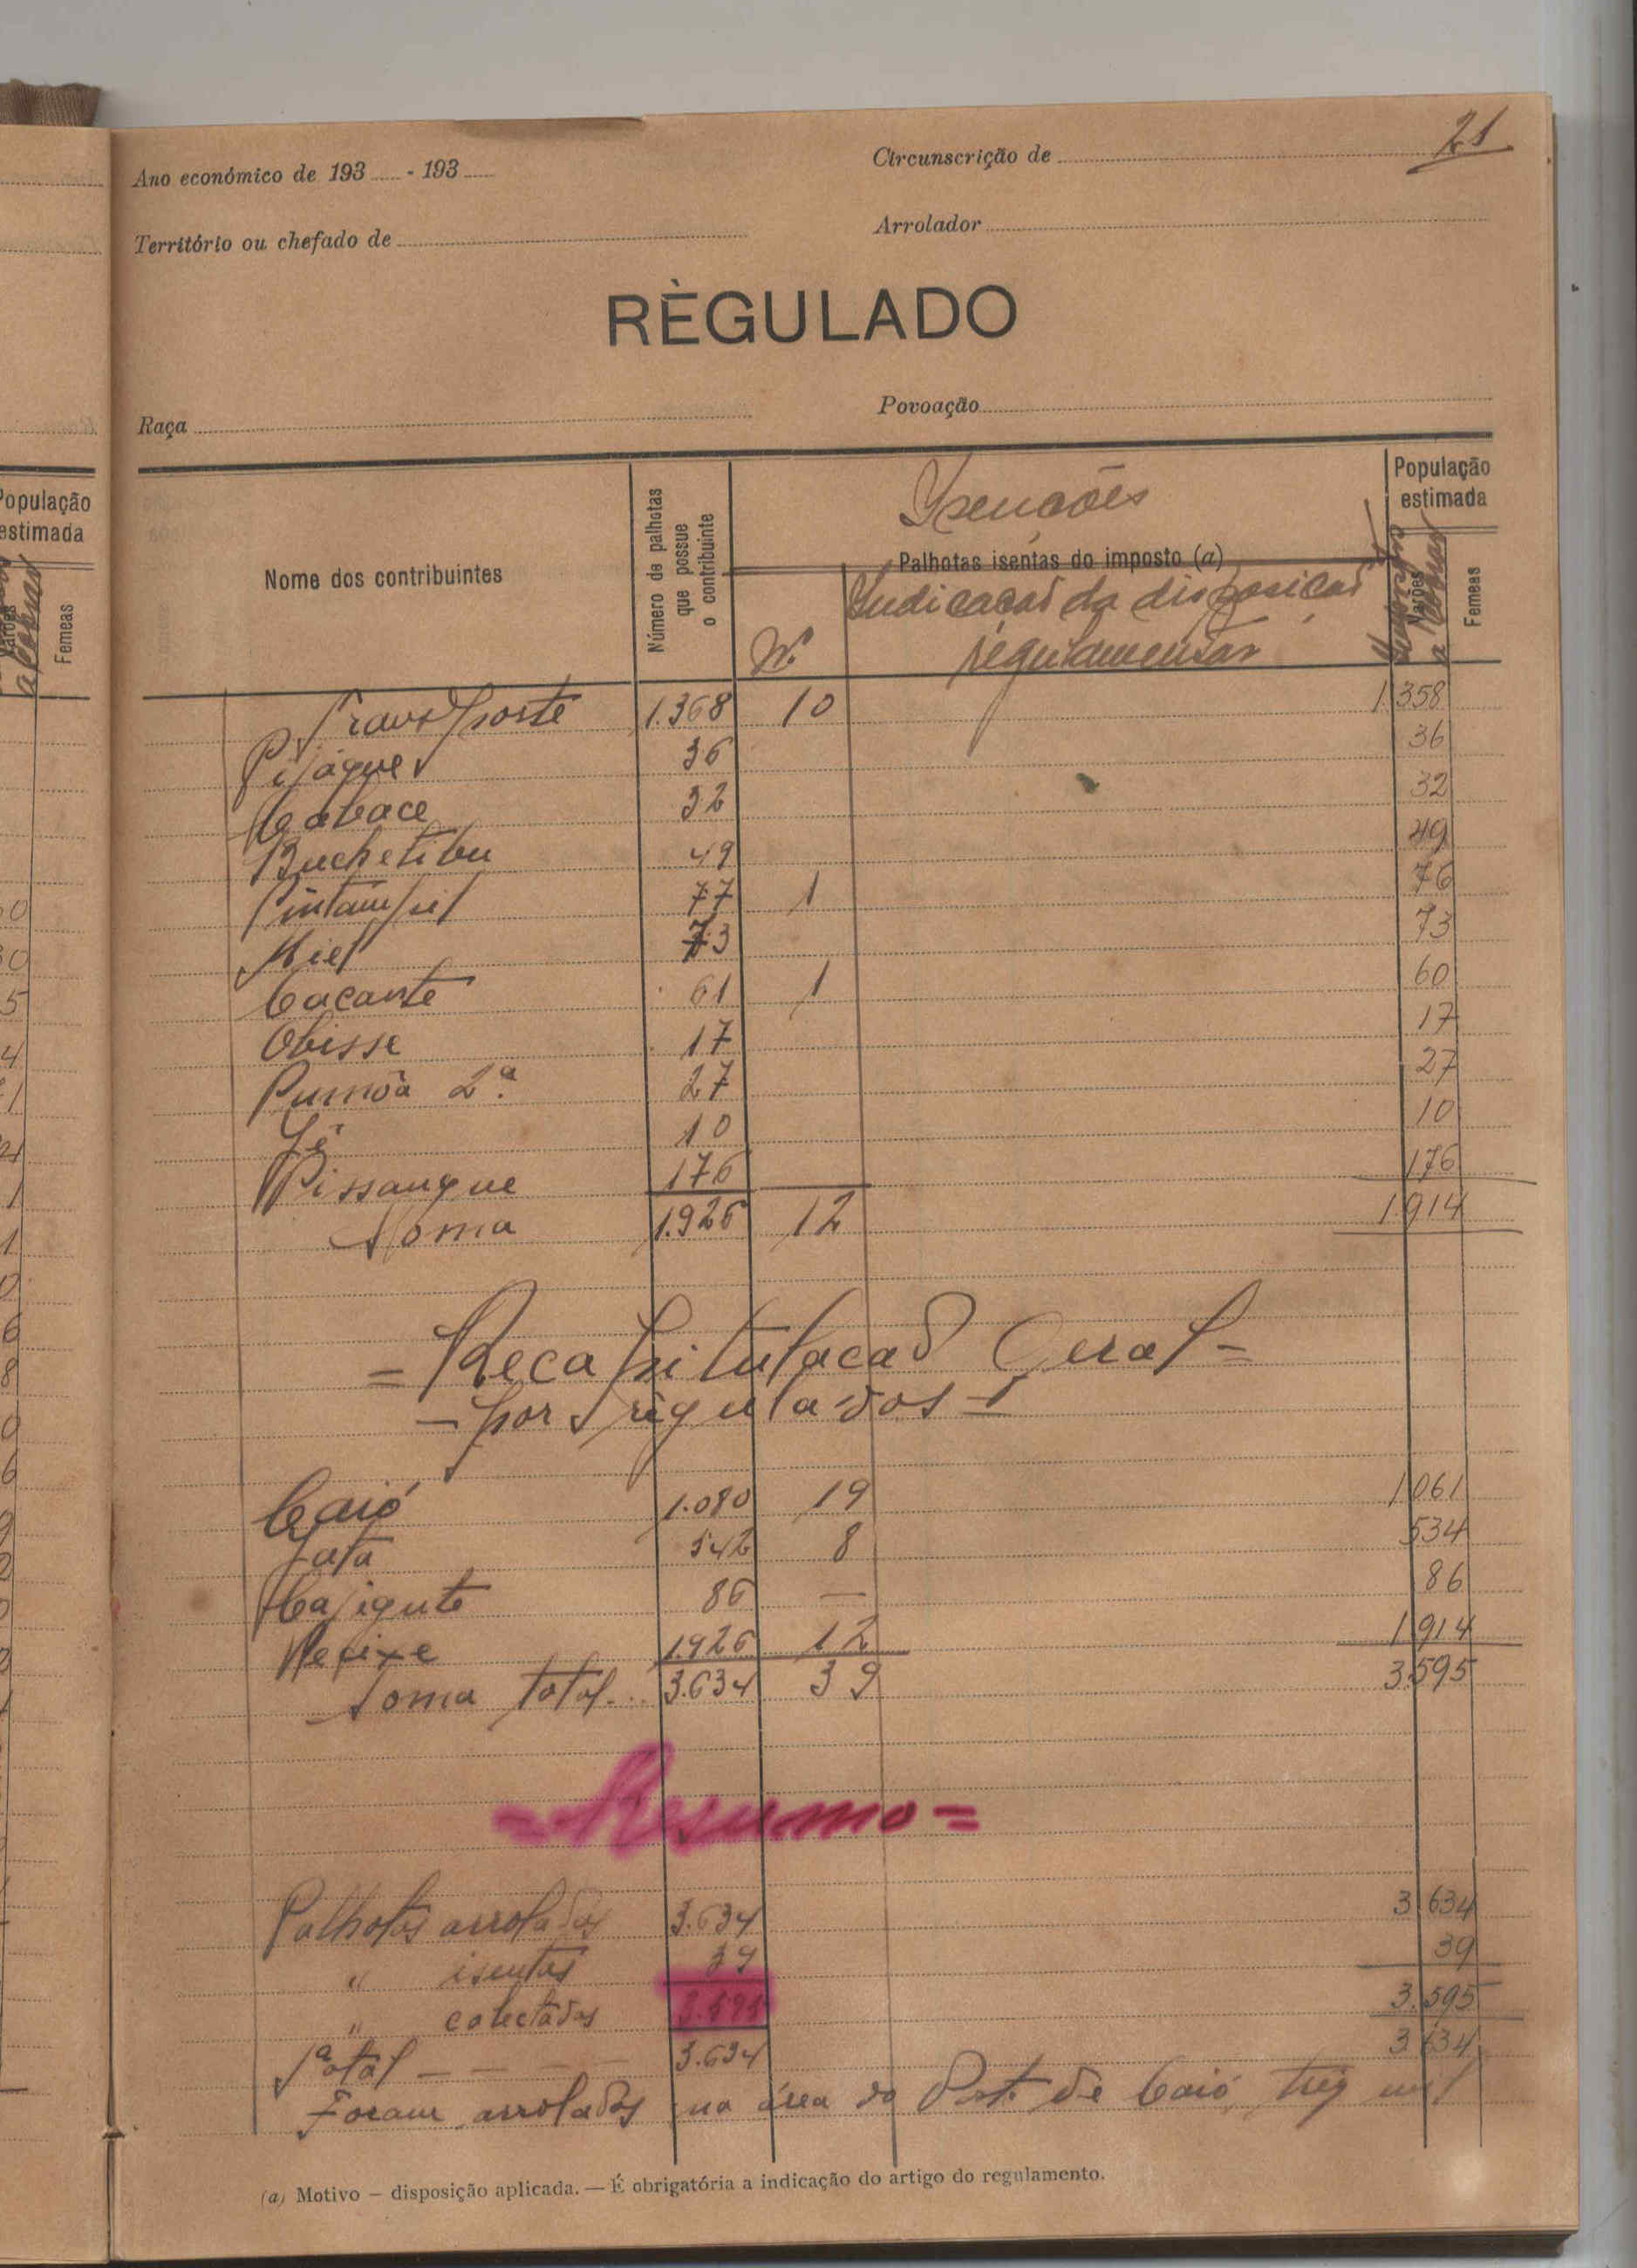 21
Ano económico de 193 - 193
Circunscrição de
Território ou chefado de
Arrolador
RÈGULADO
Raça
Povoação
Nome dos contribuintes
Número de palhotas que possue o contribuinte
Isencões
Palhotas isentas do imposto (a)
N.
Indicacaõ da disposicaõ
regulamentar
População estimada
Varões
a cobrar
Femeas
Transporte 1.368 10 1.358
Pijáque 36 36
Cabace 32 32
Buchetibu 49 49
Pintampil 77 1 76
Miel 73 73
Cacante 61 1 60
Obisse 17 17
Pumõa 2ª. 27 27
Jê 10 10
Pissangue 176 176
Soma 1.926 12 1.914
= Recapitulacaõ Geral =
- por regulados -
Caió 1.080 19 1.061
Jata 542 8 534
Cajegute 86 — 86
Pecixe 1926 12 1.914
Soma total... 3.634 39 3.595
= Resumo =
Palhotas arroladas 3.634 3.634
" isentas 39 39
" colectadas 3.595 3.595
Total - - - - 3.634 3.634
Foram arrolados na área do Posto de Caió, trez mil
(a) Motivo — disposição aplicada. — É obrigatória a indicação do artigo do regulamento.
População
estimada
a cobrar
Femeas